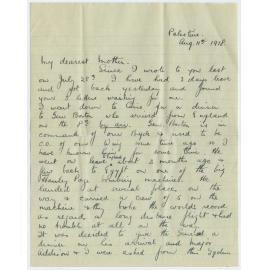 Palestine.
Aug. 11th 1918.
My dearest Mother -
Since I wrote to you last
on July 28th I have had 3 days leave
and got back yesterday and found
your 2 letters waiting for me.
I went down to Cairo for a dinner
to Gen. Borton who arrived from England
on the 8th by air. Gen. Borton is in
command of our Bgde & used to be
C.O. of our Wing some time ago
have known some time. He
went on leave about 2 months ago &
flew back to Egypt on one of the big
Handley Page bombing machines. He
landed at several places on the
way & carried a crew of 5 on the
machine & thus holds the world's record
as regards a long distance flight & had
no trouble at all on the way.
It was decided to give the General a
dinner on his arrival and Major
Addison & I were asked from this Sqdn